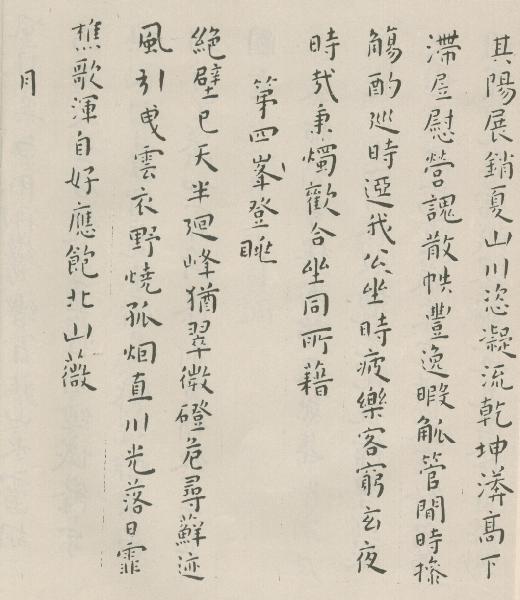 其陽展銷夏山川恣凝流乾坤漭高下
滯屋慰營魂散帙豐逸暇觚管閒時操
觴酌巡時迓我公坐時疲樂客窮玄夜
時哉秉燭歡合坐同所藉
第四峯登眺
絕壁已天半廻峰猶翠微磴危尋蘚迹
風引曳雲衣野燒孤烟直川光落日霏
樵歌渾自好應飽北山薇
月